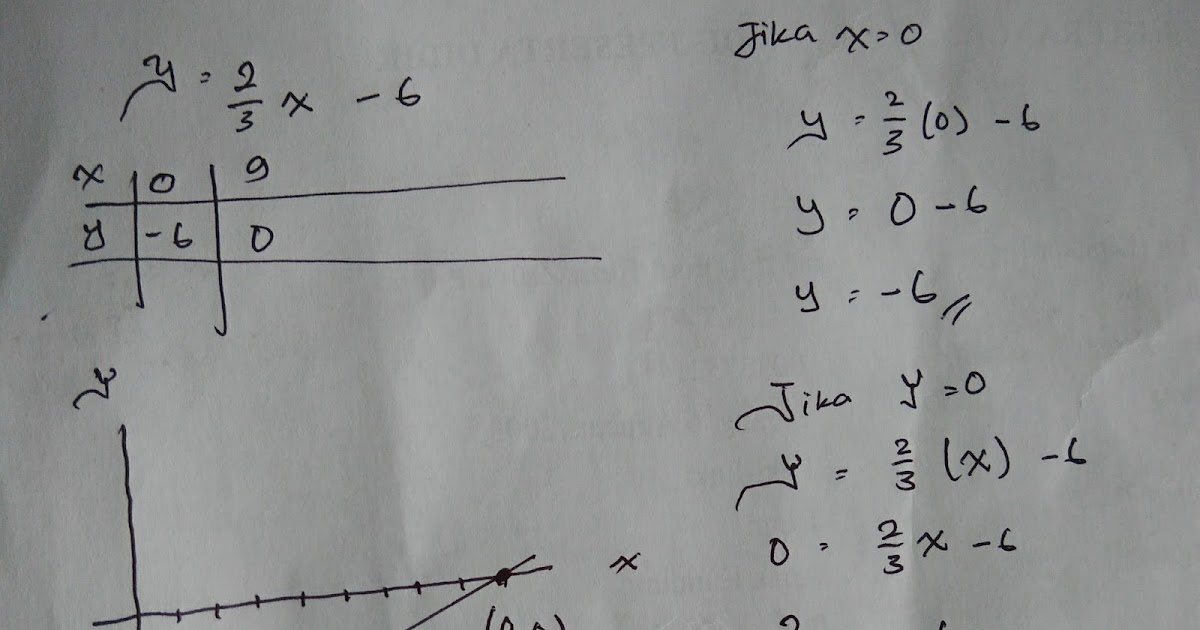 y = 2/3 x - 6
x 0 9
y -6 0
y
x
Jika x=0
y = 2/3 (0) - 6
y = 0 - 6
y = -6 //
Jika y=0
y = 2/3 (x) - 6
0 = 2/3 x - 6